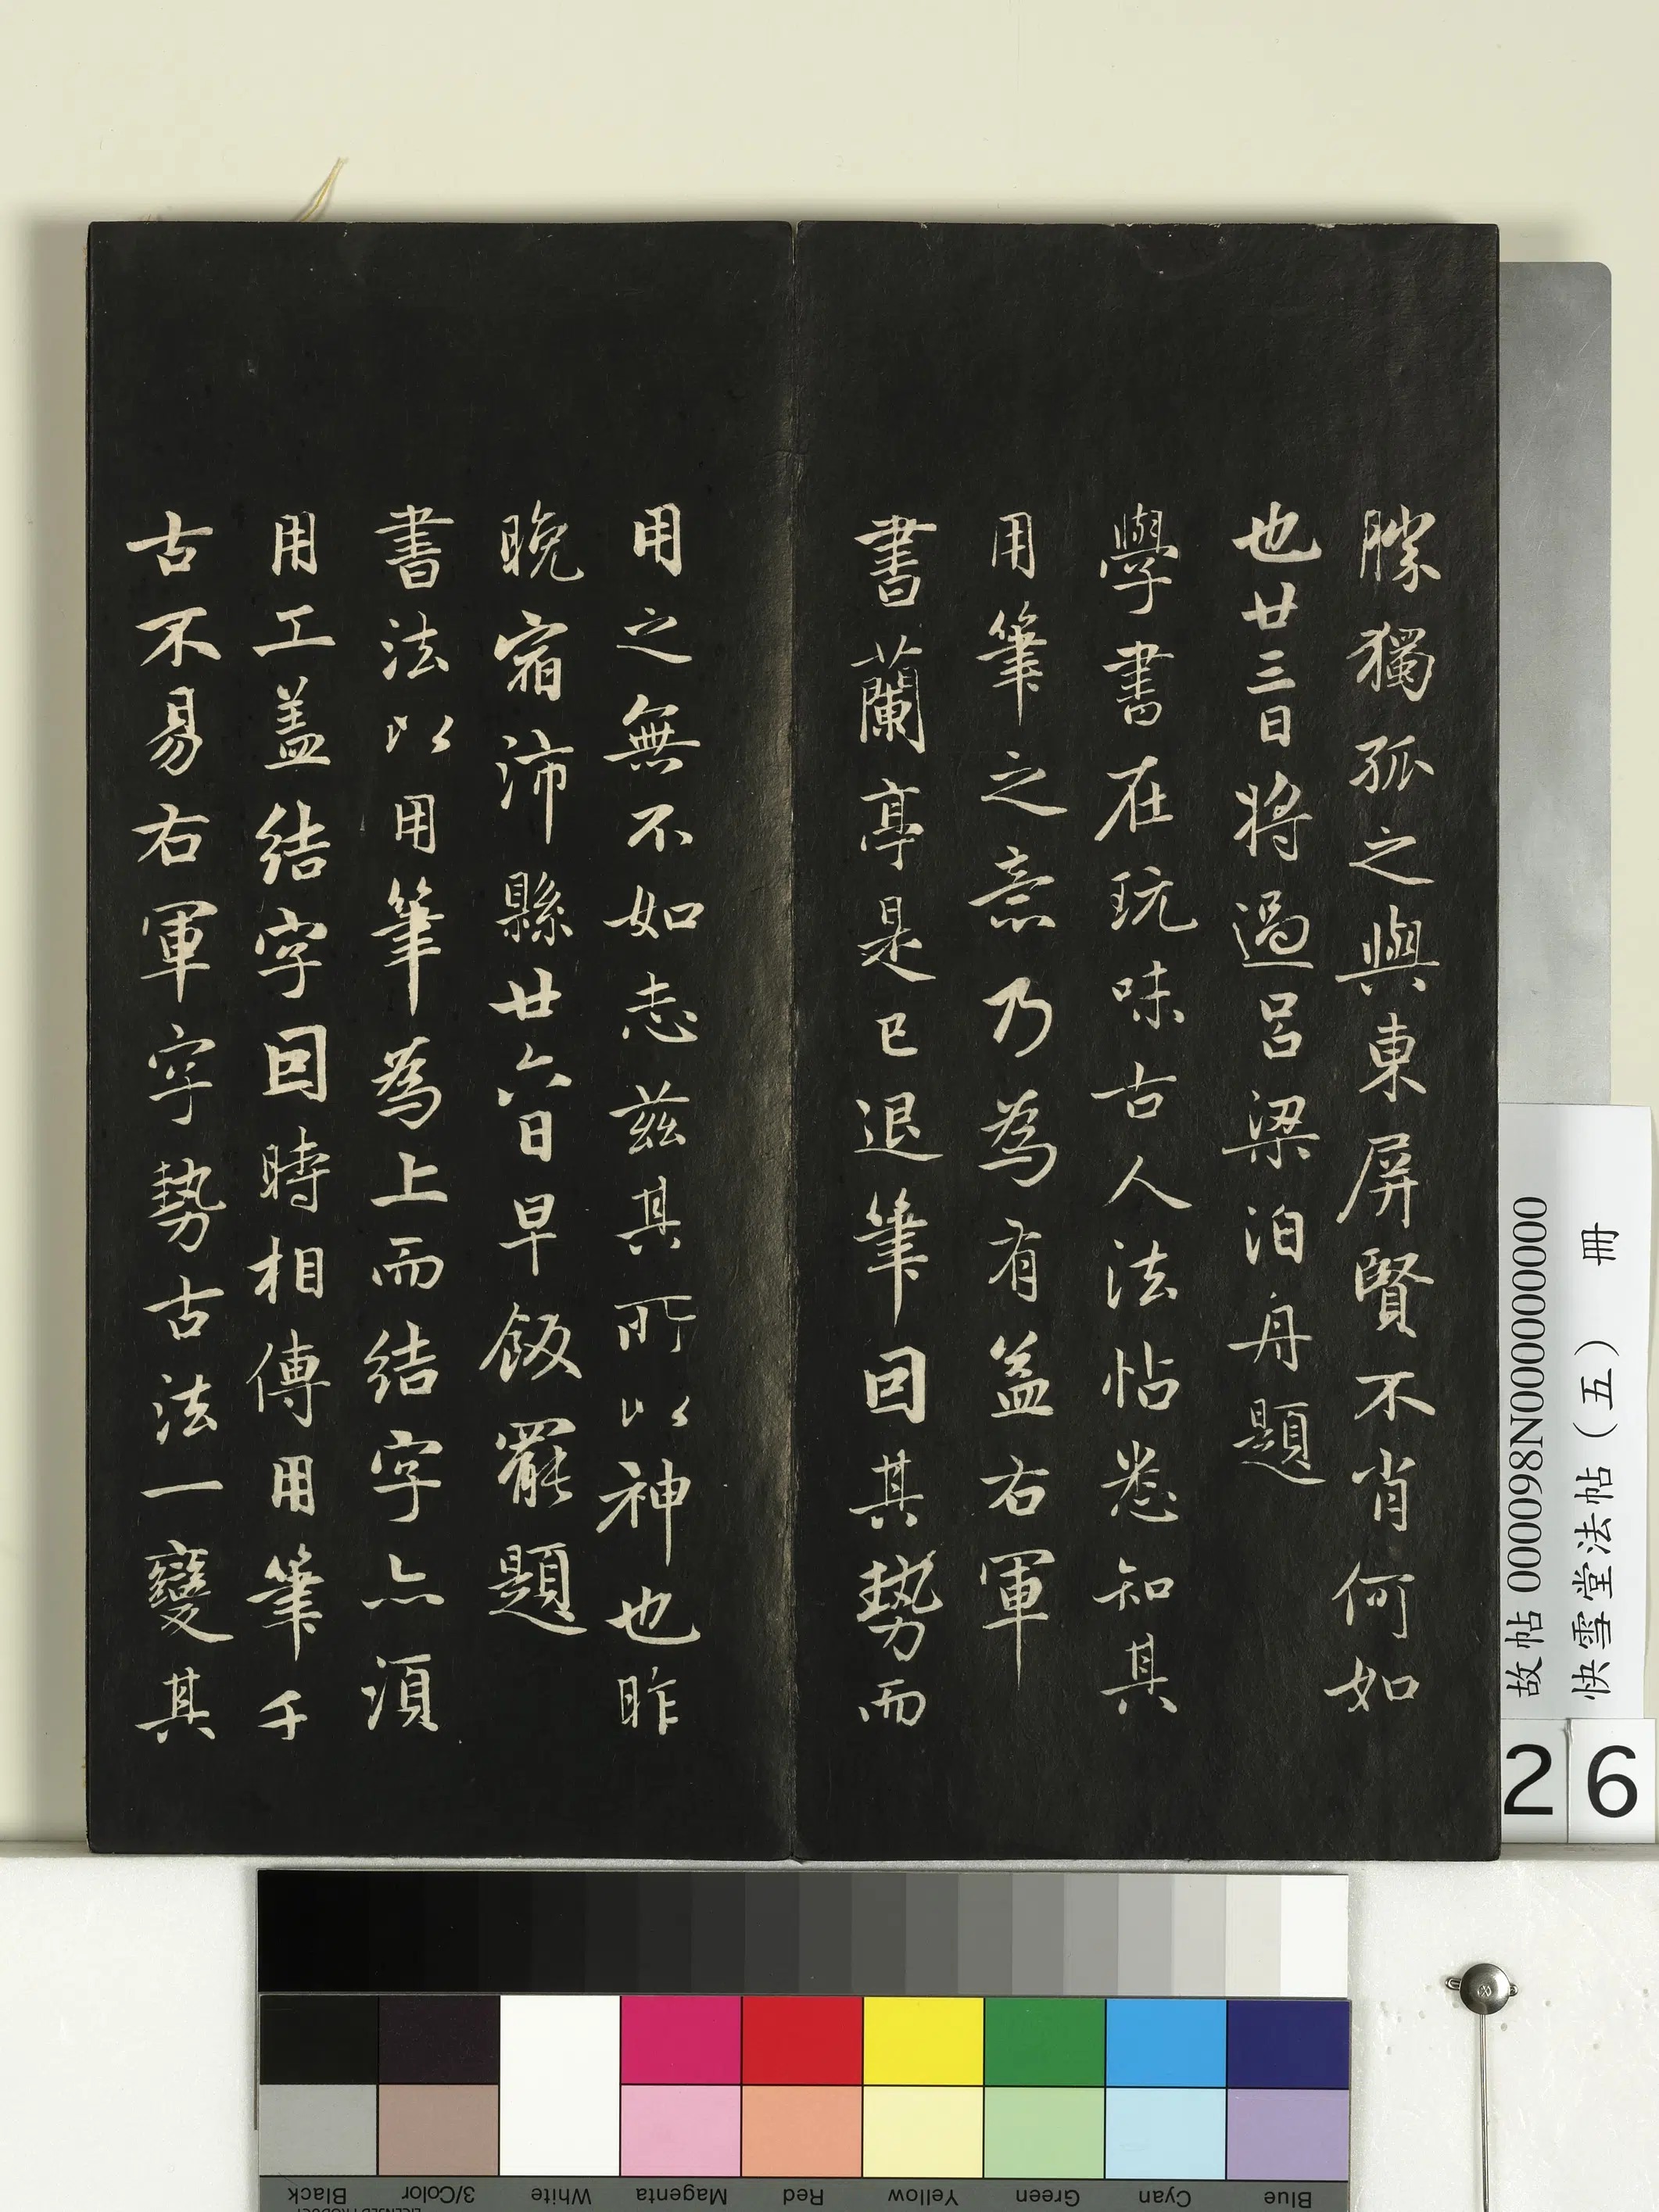 滕獨孤之與東屏賢不肖何如
也廿三日將過呂梁泊舟題
學書在玩味古人法帖悉知其
用筆之意乃為有益右軍
書蘭亭是已退筆因其勢而
用之無不如志茲其所以神也昨
晚宿沛縣廿六日早飯罷題
書法以用筆為上而結字亦須
用工盖結字因時相傳用筆千
古不易右軍字勢古法一變其
故帖 000098N000000000
快雪堂法帖（五） 冊
26
Black
3/Color
White
Magenta
Red
Yellow
Green
Cyan
Blue